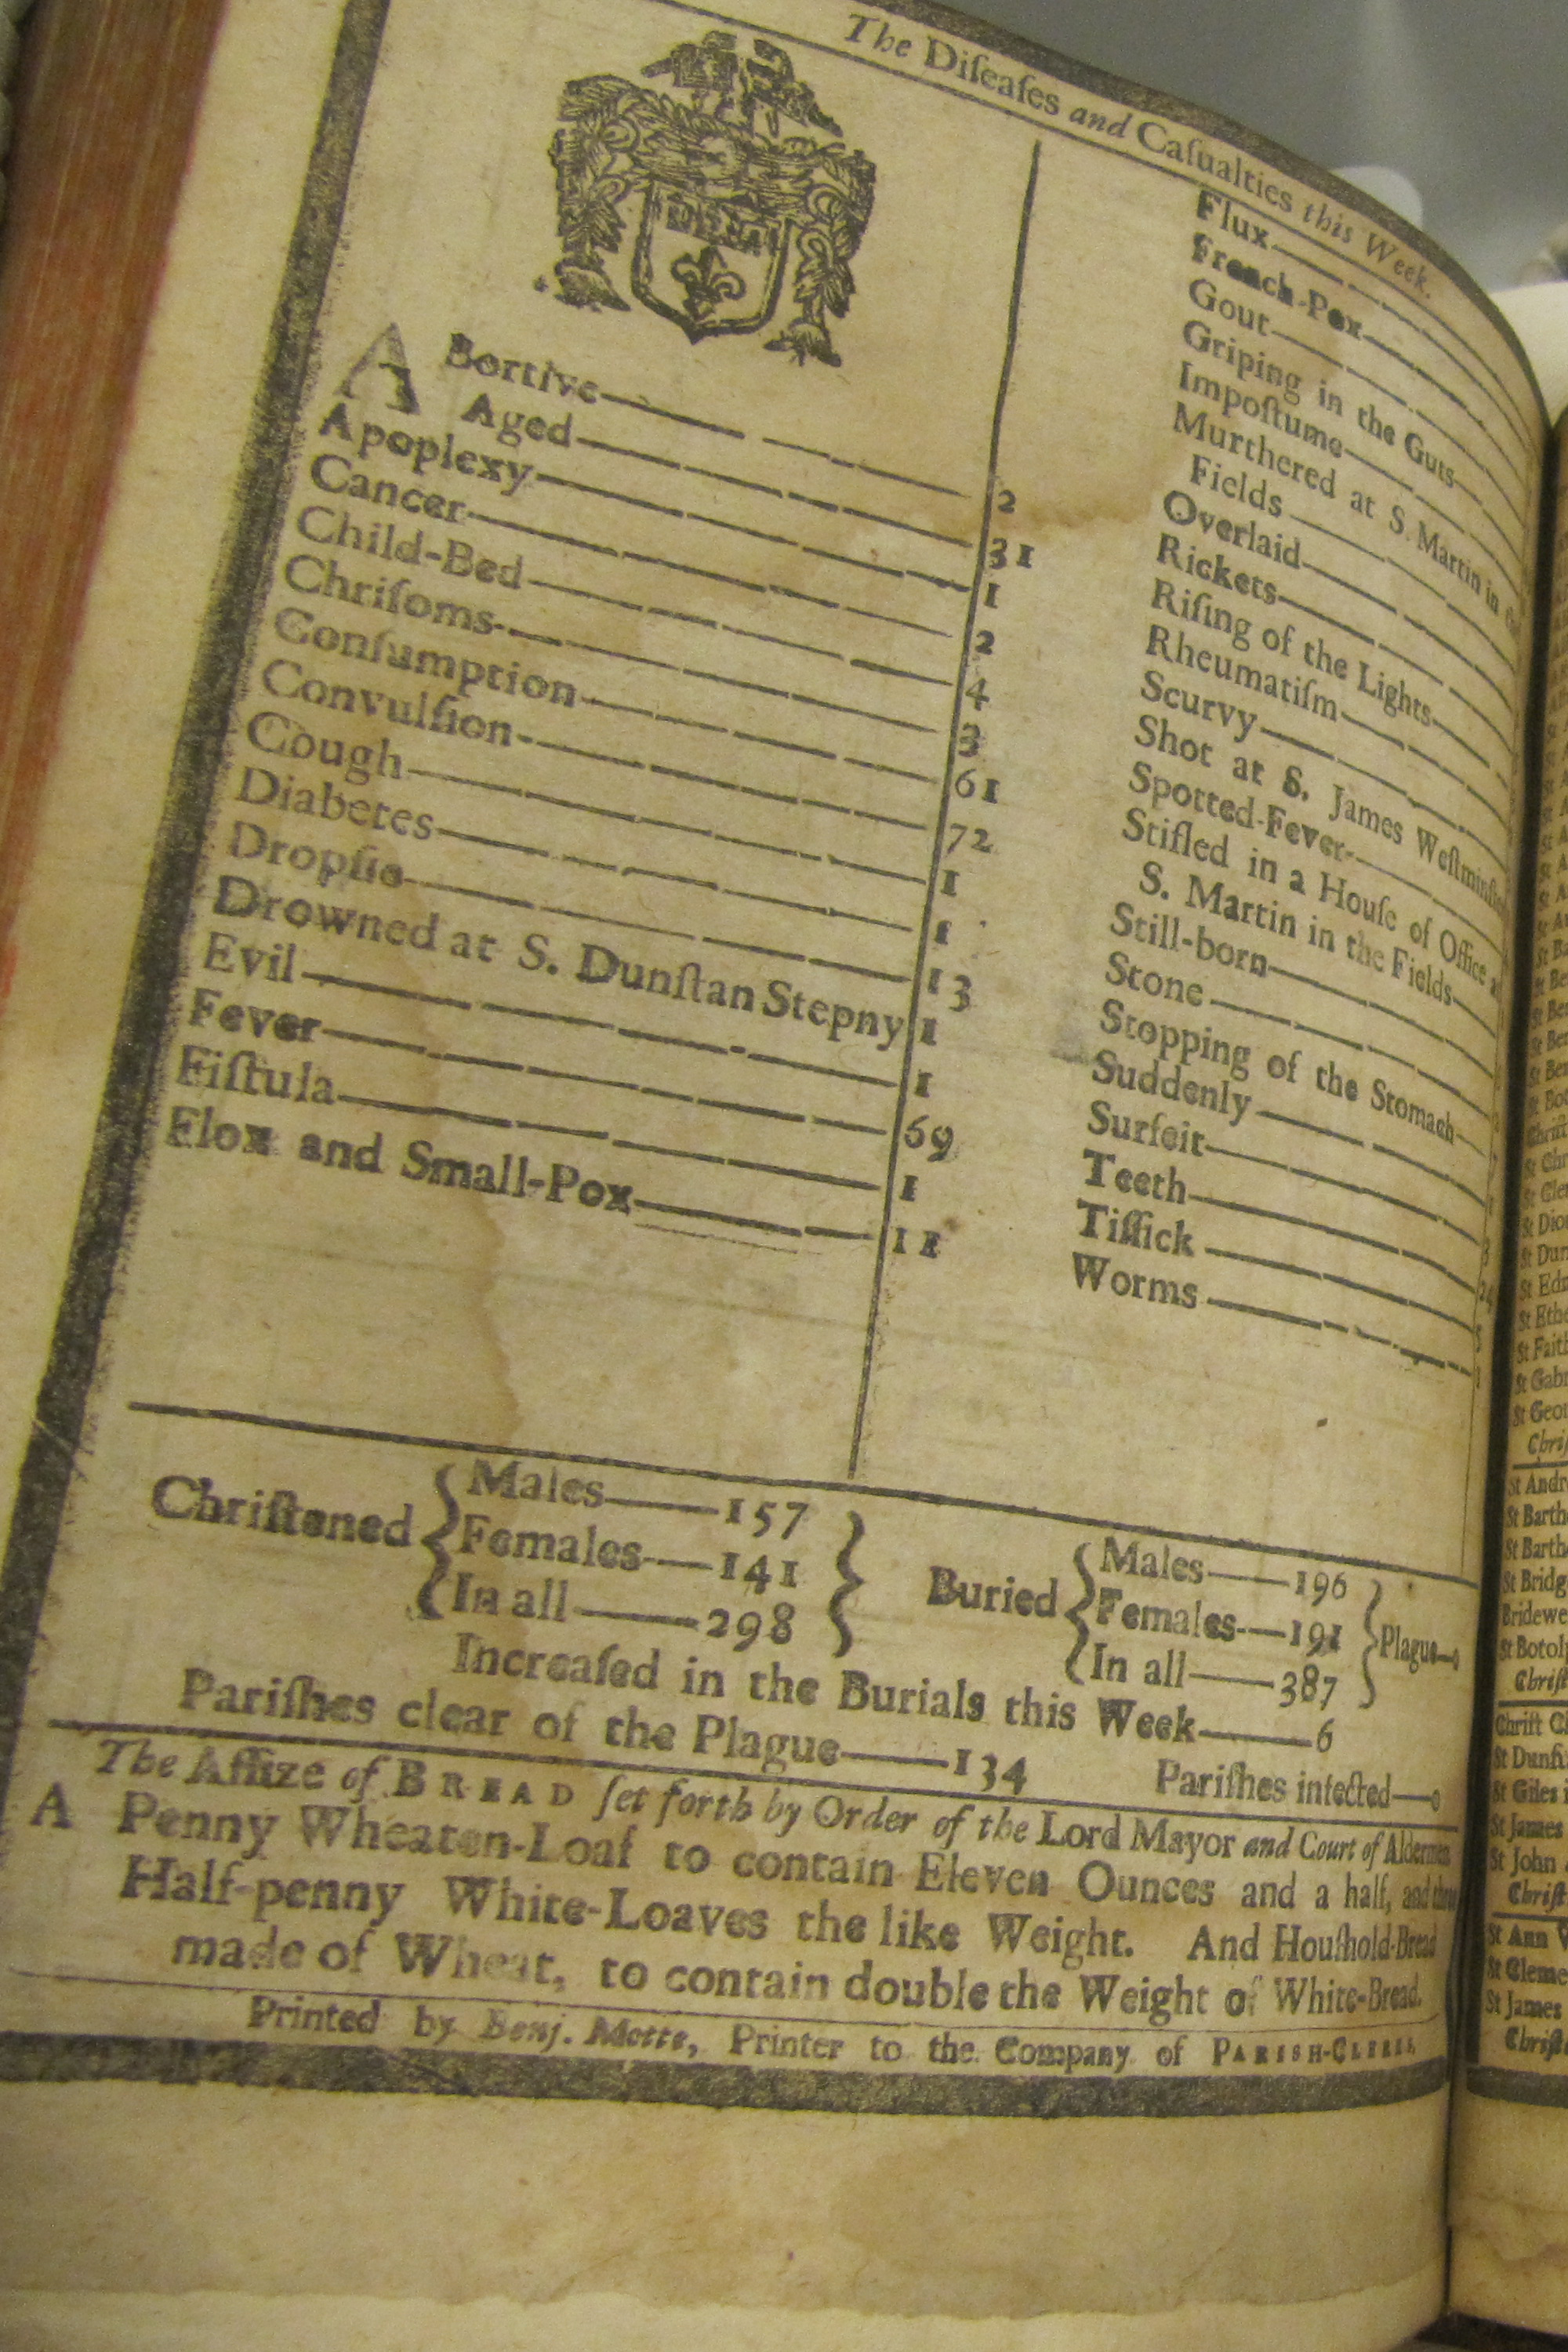 The Diſeaſes and Caſualties this Week.
ABortive 2
Aged 31
Apoplexy 1
Cancer 2
Child-Bed 4
Chriſoms 3
Conſumption 61
Convulſion 72
Cough 1
Diabetes 1
Dropſie 13
Drowned at S. Dunſtan Stepny 1
Evil 1
Fever 69
Fiſtula 1
Flox and Small-Pox 11
Flux
French-Pox
Gout
Griping in the Guts
Impoſtume
Murthered at S. Martin in
Fields
Overlaid
Rickets
Riſing of the Lights
Rheumatiſm
Scurvy
Shot at S. James Weſtminſter
Spotted-Fever
Stifled in a Houſe of Office at
S. Martin in the Fields
Still-born
Stone
Stopping of the Stomach
Suddenly
Surfeit 3
Teeth 24
Tiſſick 5
Worms 1
Chriſtened { Males 157
Females 141
In all 298 }
Buried { Males 196
Females 191
In all 387 } Plague 0
Increaſed in the Burials this Week 6
Pariſhes clear of the Plague 134 Pariſhes infected 0
The Aſſize of BREAD ſet forth by Order of the Lord Mayor and Court of Aldermen
A Penny Wheaten-Loaf to contain Eleven Ounces and a half, and three
Half-penny White-Loaves the like Weight. And Houſhold-Bread
made of Wheat, to contain double the Weight of White-Bread.
Printed by Benj. Motte, Printer to the Company of PARISH-CLERKS.
St Faith
St Gabr
St Geor
Chriſ
St Andr
St Barth
St Barth
St Bridg
Bridewe
St Botol
Chriſt
Chriſt C
St Dunſt
St Giles i
St James
St John
Chriſt
St Ann
St Cleme
St James
Chriſt